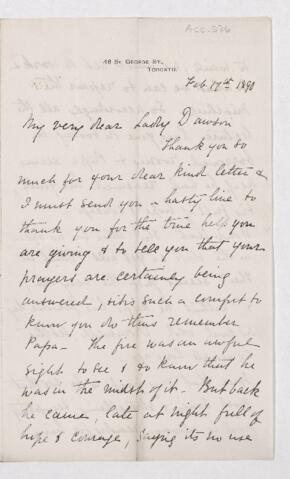 Acc. 526
46 St. George St.,
Toronto.
Feb. 17th 1890
My very dear Lady Dawson
Thank you so
much for your dear kind letter &
I must send you a hasty line to
thank you for the true help you
are giving & to tell you that your
prayers are certainly being
answered, & it is such a comfort to
know you do thus remember
Papa - The fire was an awful
sight to see & to know that he
was in the midst of it. But back
he came, late at night full of
hope & courage, saying its no use